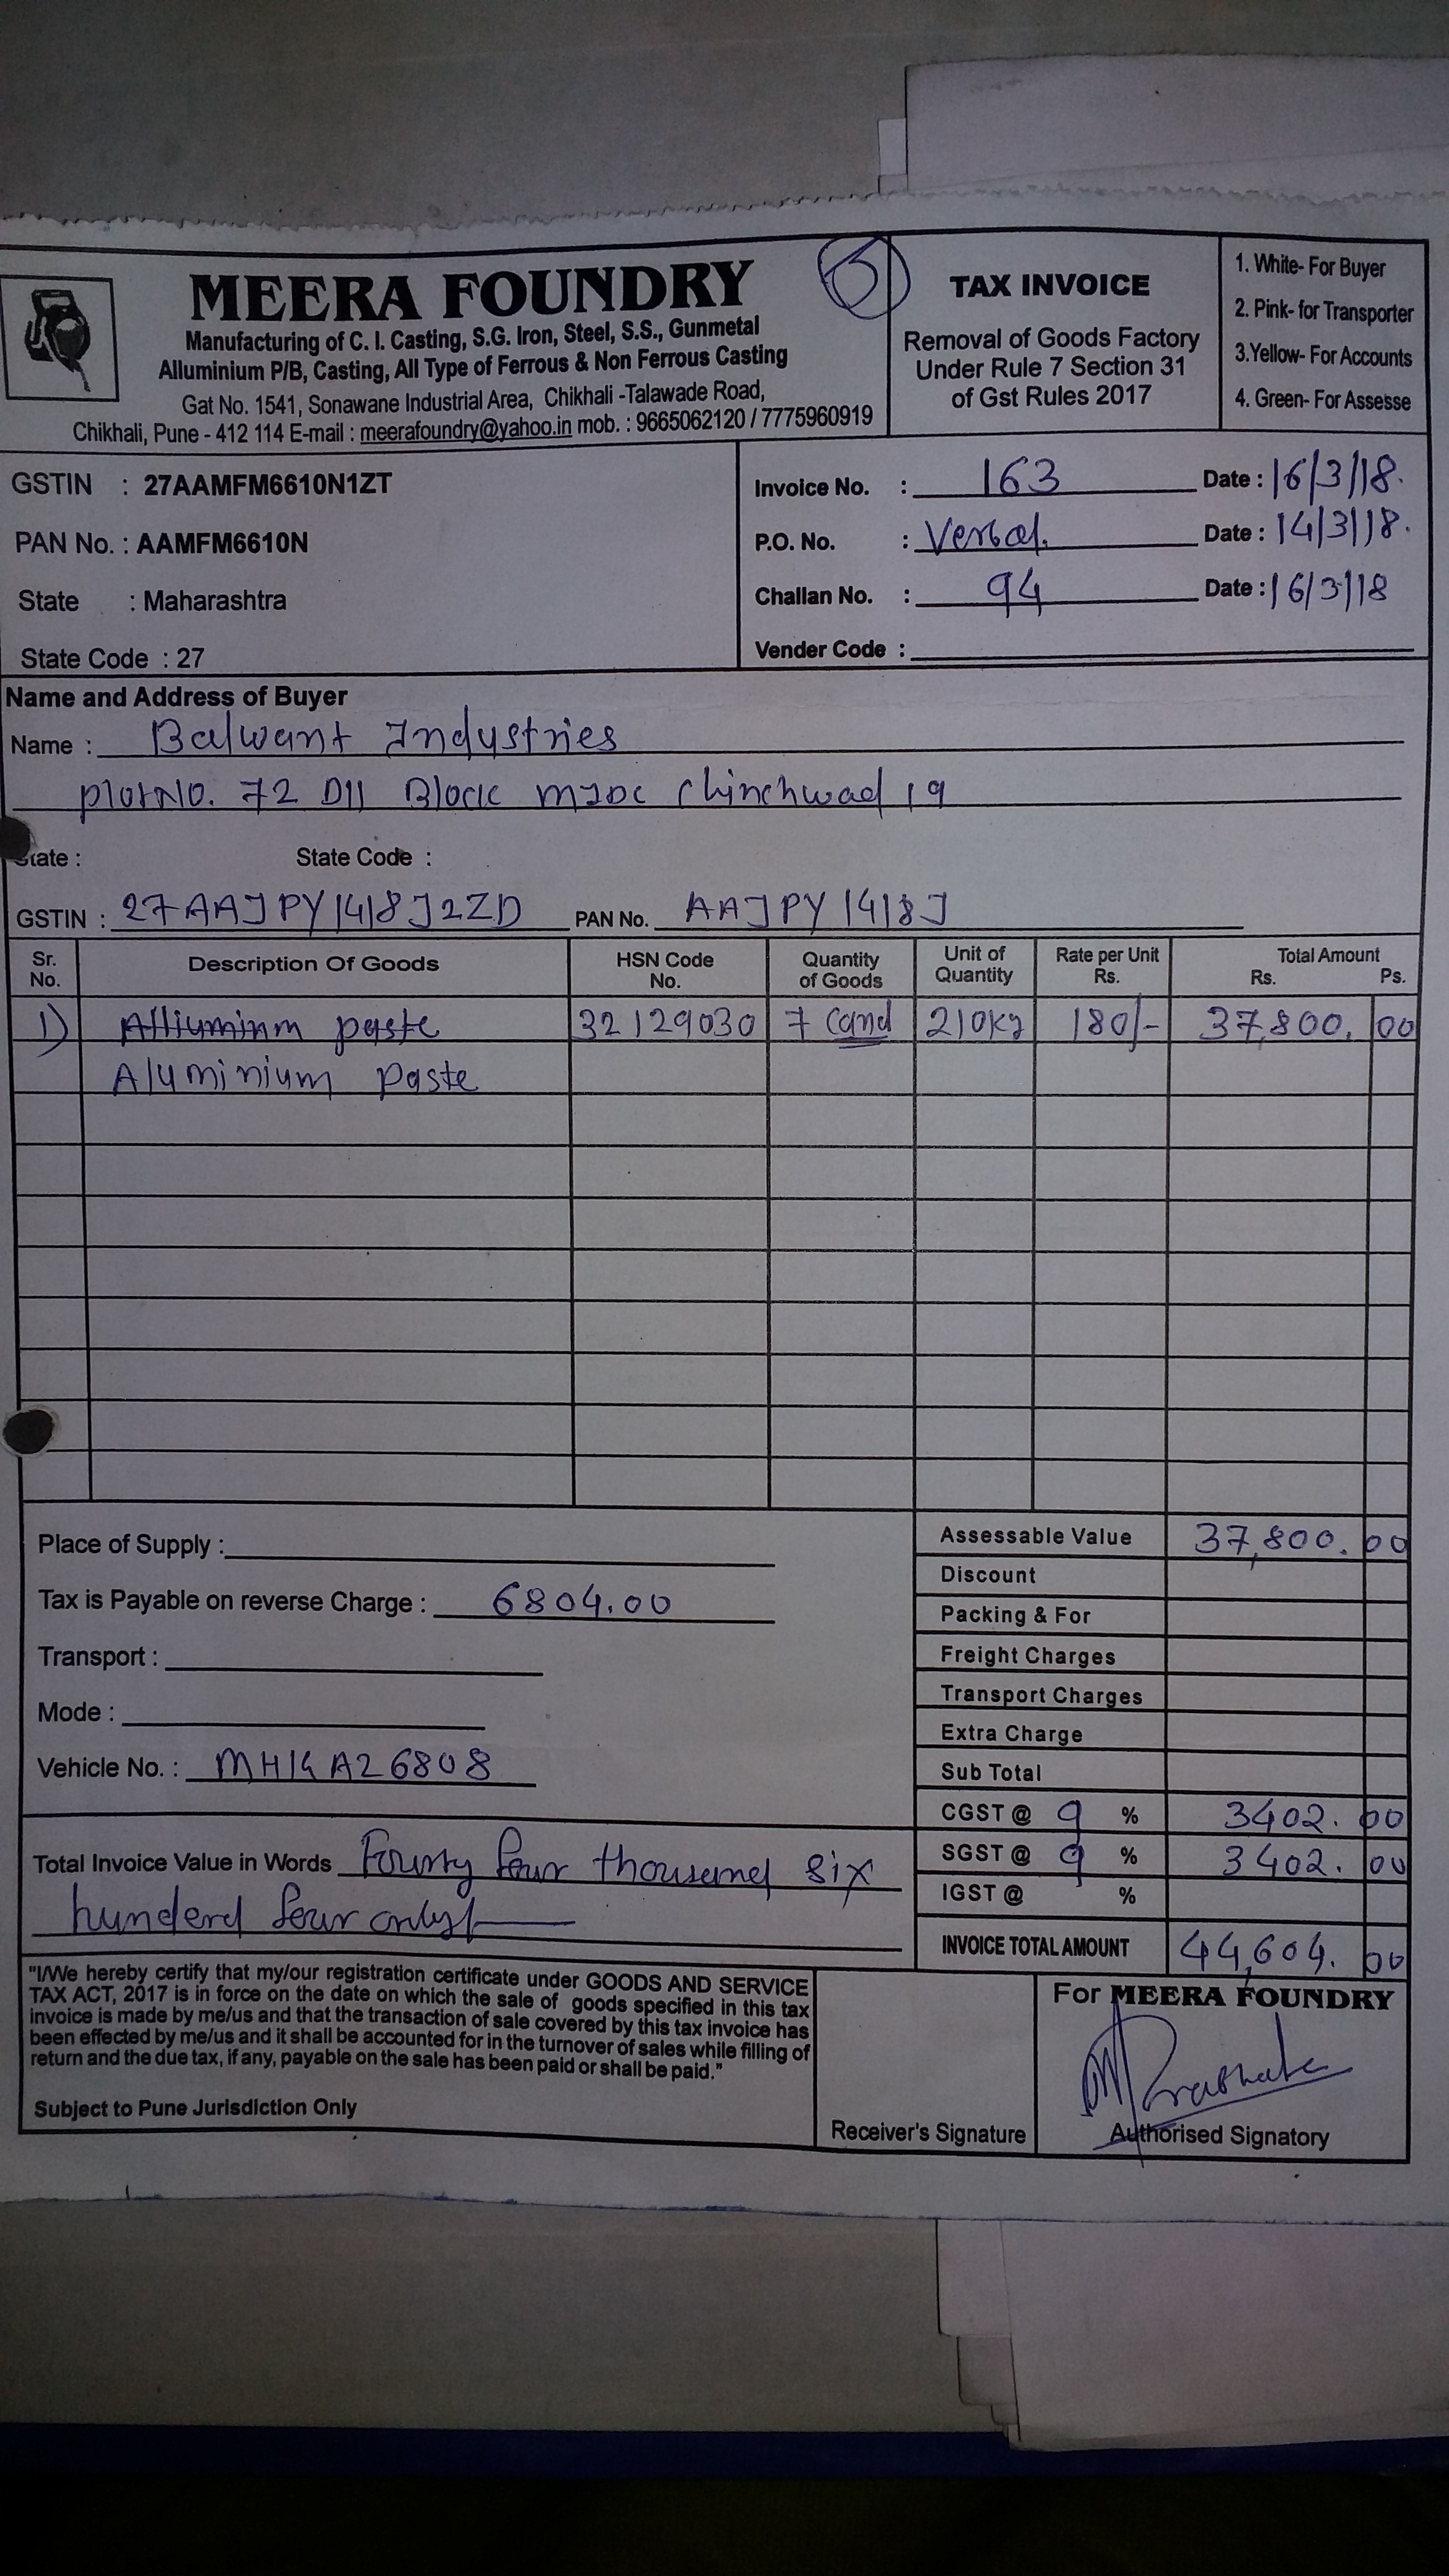 MEERA FOUNDRY
Manufacturing of C. I. Casting, S.G. Iron, Steel, S.S., Gunmetal
Alluminium P/B, Casting, All Type of Ferrous & Non Ferrous Casting
Gat No. 1541, Sonawane Industrial Area, Chikhali -Talawade Road,
Chikhali, Pune - 412 114 E-mail : meerafoundry@yahoo.in mob. : 9665062120 / 7775960919
TAX INVOICE
Removal of Goods Factory
Under Rule 7 Section 31
of Gst Rules 2017
1. White- For Buyer
2. Pink- for Transporter
3.Yellow- For Accounts
4. Green- For Assesse
GSTIN : 27AAMFM6610N1ZT
PAN No. : AAMFM6610N
State : Maharashtra
State Code : 27
Invoice No. : 163 Date : 16/3/18.
P.O. No. : Verbal. Date : 14/3/18.
Challan No. : 94 Date : 16/3/18
Vender Code :
Name and Address of Buyer
Name : Balwant Industries
plot No. 72 D11 Block MIDC Chinchwad 19
State : State Code :
GSTIN : 27AAJPY1418J2ZD PAN No. AAJPY1418J
Sr. No. Description Of Goods HSN Code No. Quantity of Goods Unit of Quantity Rate per Unit Rs. Total Amount Rs. Ps.
1) Alliuminm paste 32129030 7 Cand 210Kg 180/- 37,800. 00
Aluminium paste
Place of Supply :
Tax is Payable on reverse Charge : 6804.00
Transport :
Mode :
Vehicle No. : MH14 A26808
Total Invoice Value in Words Fourty four thousend six
hunderd four only/-
Assessable Value 37,800. 00
Discount
Packing & For
Freight Charges
Transport Charges
Extra Charge
Sub Total
CGST @ 9 % 3402. 00
SGST @ 9 % 3402. 00
IGST @ %
INVOICE TOTAL AMOUNT 44,604. 00
"I/We hereby certify that my/our registration certificate under GOODS AND SERVICE
TAX ACT, 2017 is in force on the date on which the sale of goods specified in this tax
invoice is made by me/us and that the transaction of sale covered by this tax invoice has
been effected by me/us and it shall be accounted for in the turnover of sales while filling of
return and the due tax, if any, payable on the sale has been paid or shall be paid."
Subject to Pune Jurisdiction Only
Receiver's Signature
For MEERA FOUNDRY
Authorised Signatory